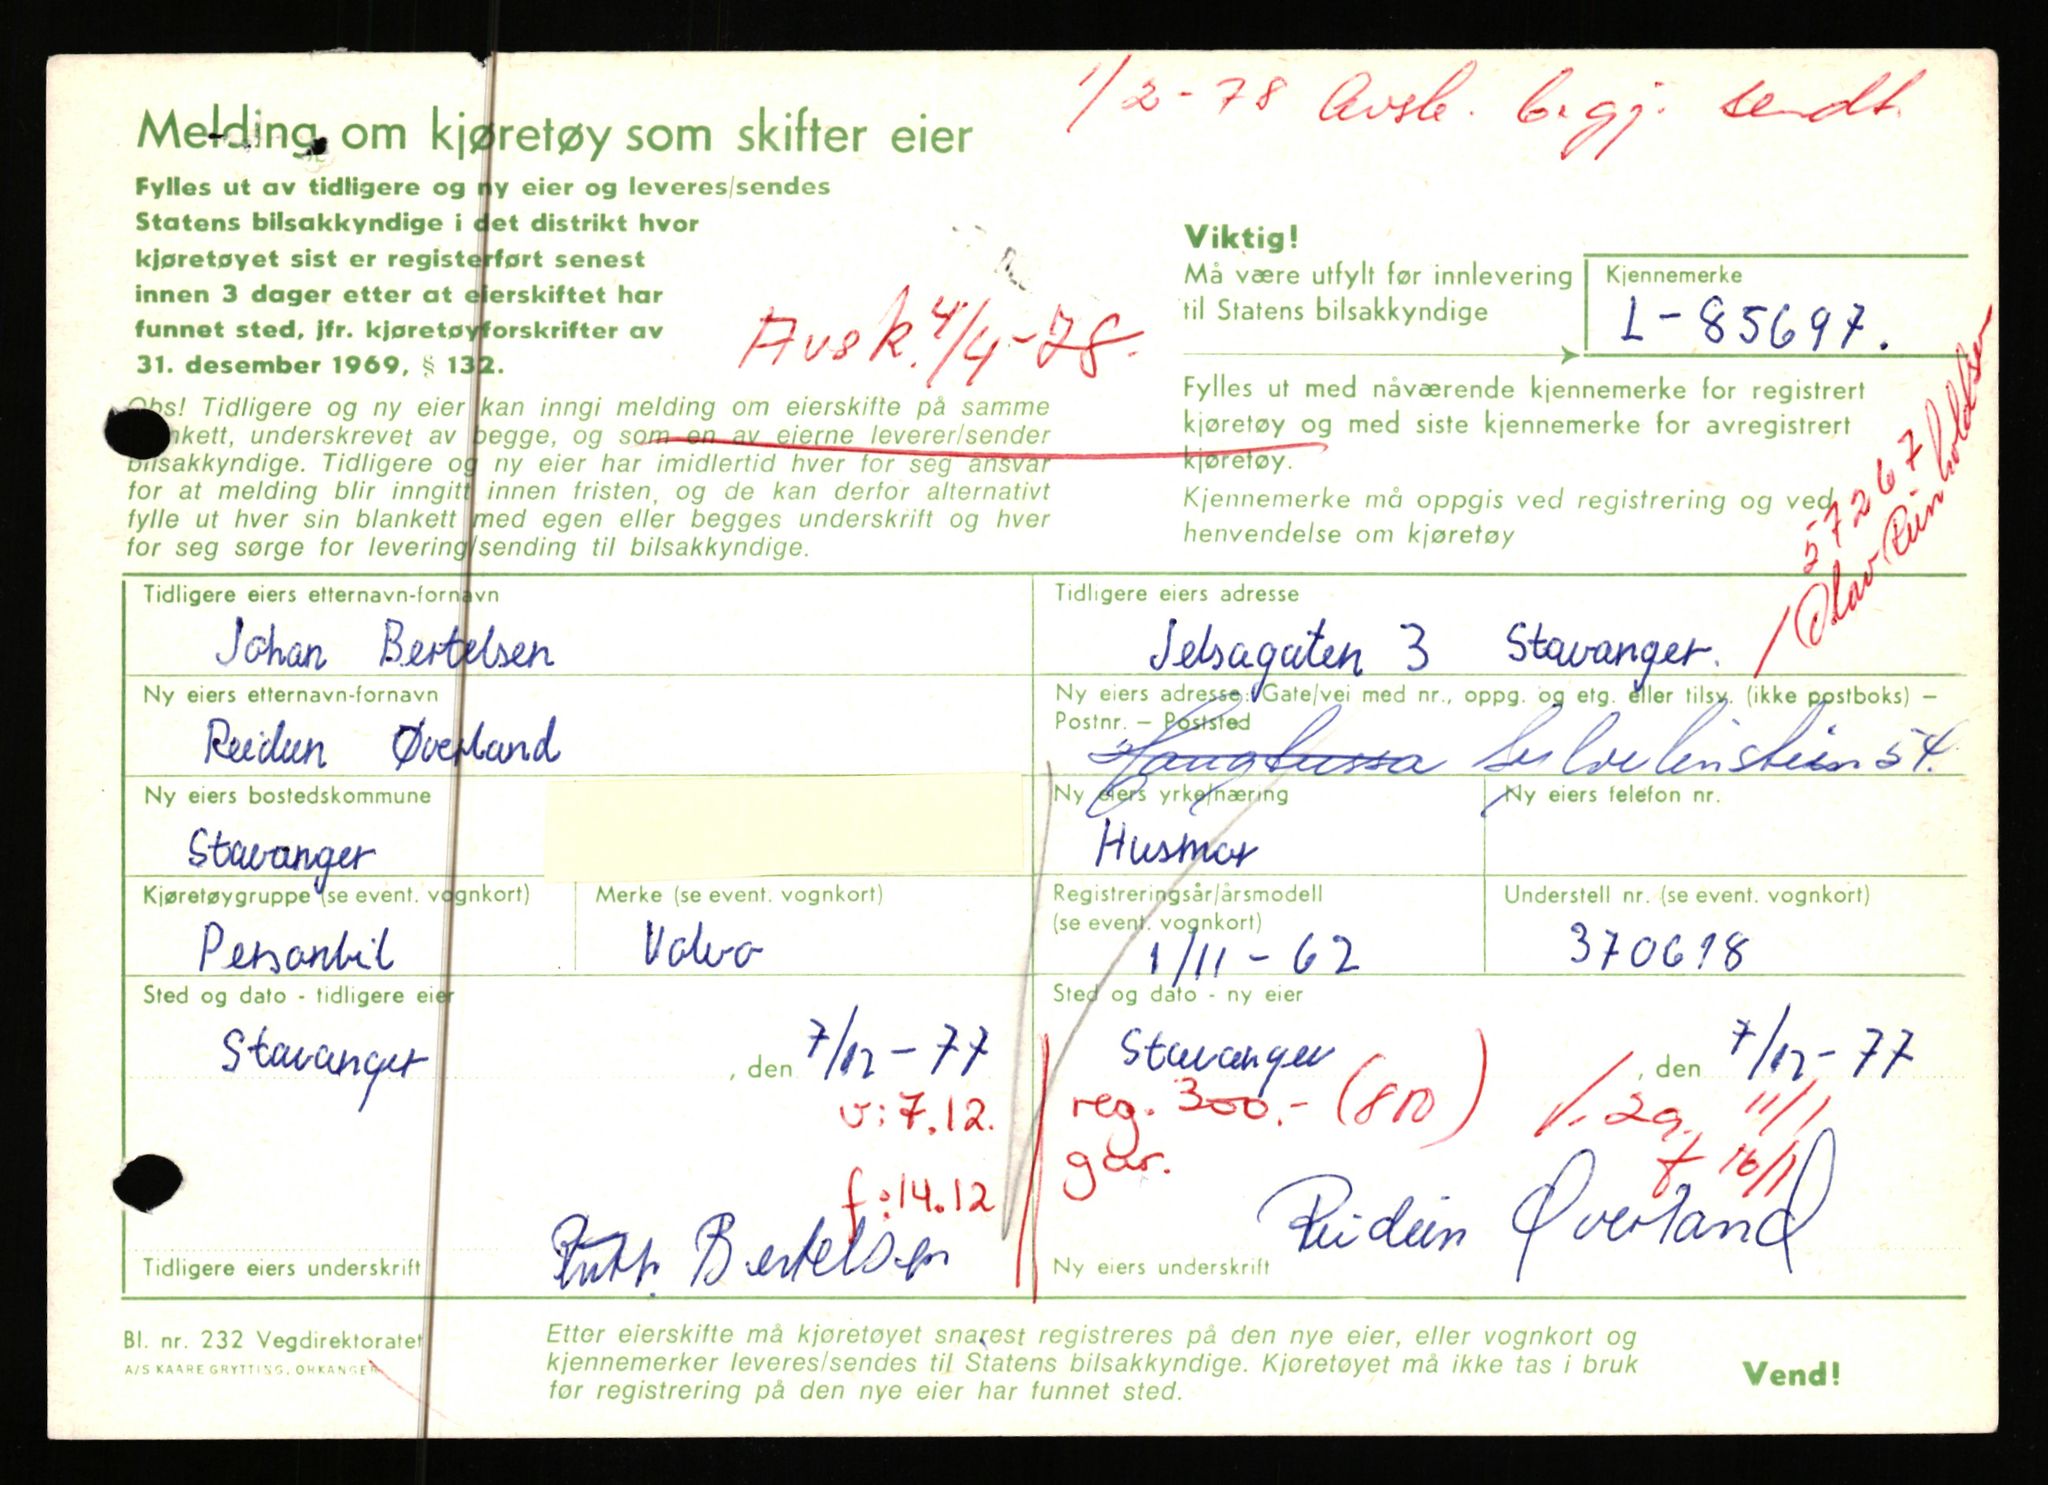 1/2-78 Avsk. begj. sendt.
Melding om kjøretøy som skifter eier
Fylles ut av tidligere og ny eier og leveres/sendes
Statens bilsakkyndige i det distrikt hvor
kjøretøyet sist er registerført senest
innen 3 dager etter at eierskiftet har
funnet sted, jfr. kjøretøyforskrifter av
31. desember 1969, § 132.
Avsk. 4/4-78.
Viktig!
Må være utfylt før innlevering
til Statens bilsakkyndige
Kjennemerke
L-85697.
Obs! Tidligere og ny eier kan inngi melding om eierskifte på samme
blankett, underskrevet av begge, og som en av eierne leverer/sender
bilsakkyndige. Tidligere og ny eier har imidlertid hver for seg ansvar
for at melding blir inngitt innen fristen, og de kan derfor alternativt
fylle ut hver sin blankett med egen eller begges underskrift og hver
for seg sørge for levering/sending til bilsakkyndige.
Fylles ut med nåværende kjennemerke for registrert
kjøretøy og med siste kjennemerke for avregistrert
kjøretøy.
Kjennemerke må oppgis ved registrering og ved
henvendelse om kjøretøy
57267
Olav Reinholdsen
Tidligere eiers etternavn-fornavn
Johan Bertelsen
Tidligere eiers adresse
Jelsagaten 3 Stavanger.
Ny eiers etternavn-fornavn
Reidun Øverland
Ny eiers adresse: Gate/vei med nr., oppg. og etg. eller tilsv. (ikke postboks) –
Postnr. – Poststed
54.
Ny eiers bostedskommune
Stavanger
Ny eiers yrke/næring
Husmor
Ny eiers telefon nr.
Kjøretøygruppe (se event. vognkort)
Personbil
Merke (se event. vognkort)
Volvo
Registreringsår/årsmodell
(se event. vognkort)
1/11-62
Understell nr. (se event. vognkort)
370618
Sted og dato - tidligere eier
Stavanger, den 7/12-77
Sted og dato - ny eier
Stavanger, den 7/12-77
v: 7.12.
f: 14.12
reg. 300.- (800)
gar.
11/1
16/1
Tidligere eiers underskrift
Bertelsen
Ny eiers underskrift
Reidun Øverland
Bl. nr. 232 Vegdirektoratet
A/S KAARE GRYTTING, ORKANGER
Etter eierskifte må kjøretøyet snarest registreres på den nye eier, eller vognkort og
kjennemerker leveres/sendes til Statens bilsakkyndige. Kjøretøyet må ikke tas i bruk
før registrering på den nye eier har funnet sted.
Vend!